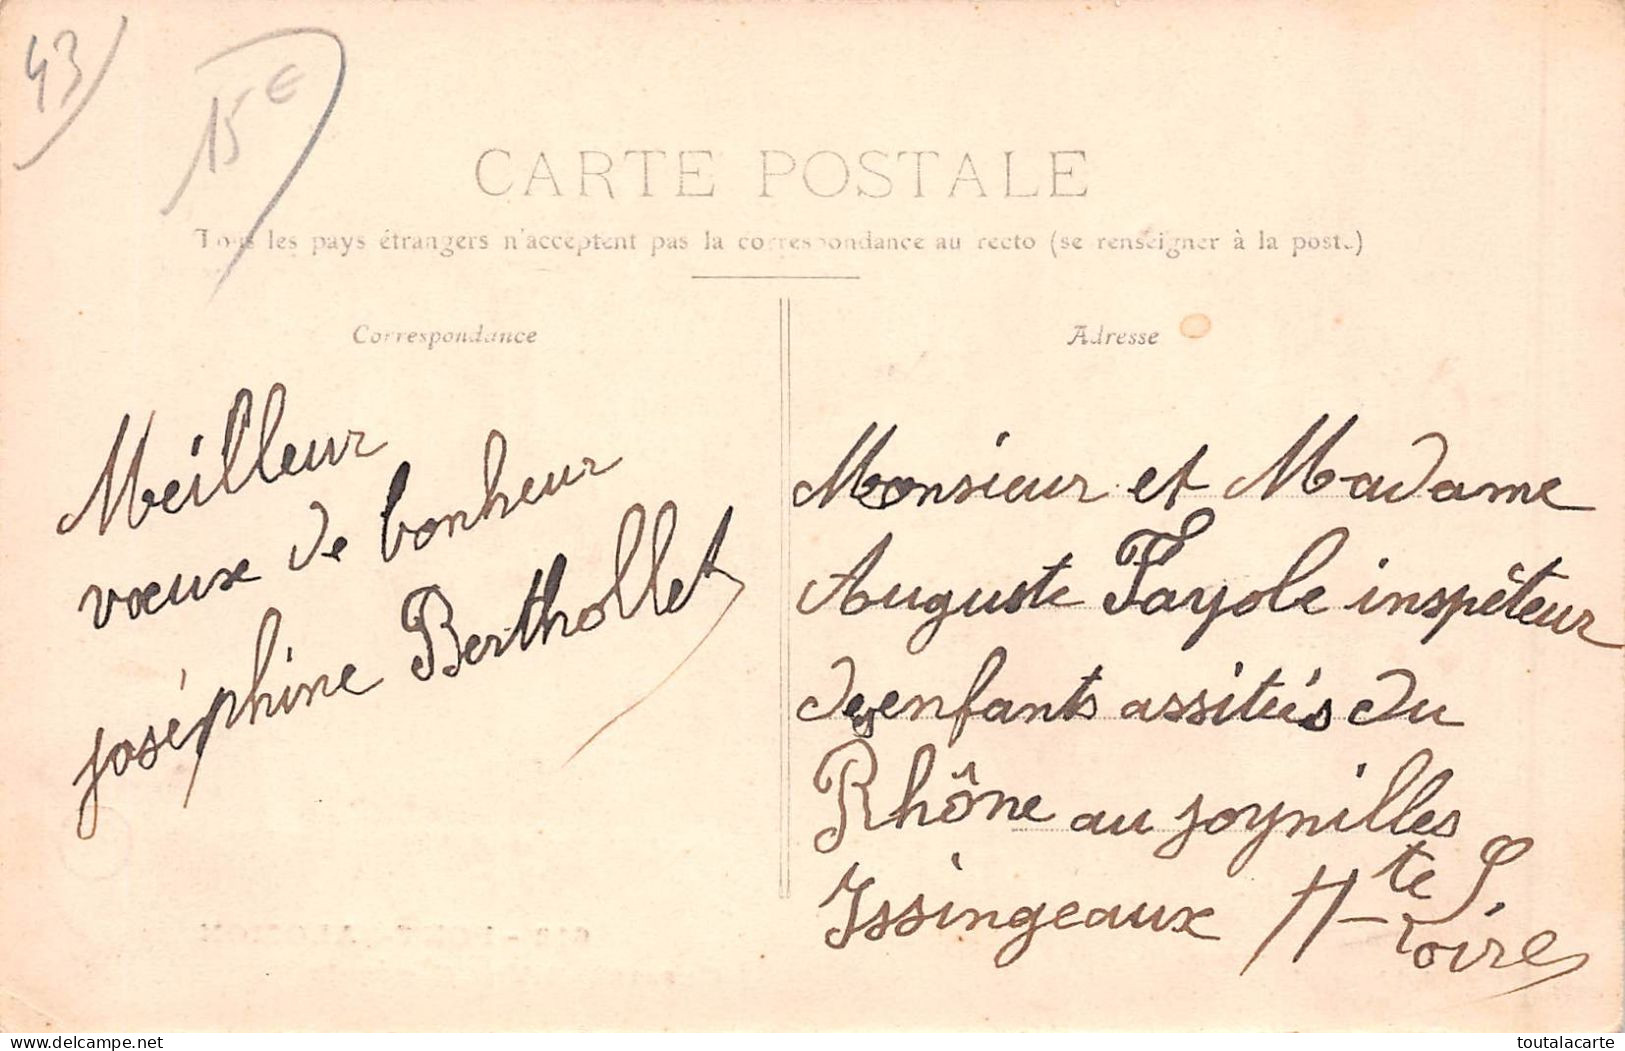 43
15€
CARTE POSTALE
Tous les pays étrangers n'acceptent pas la correspondance au recto (se renseigner à la poste)
Correspondance
Meilleur
vœux de bonheur
joséphine Berthollet
Adresse
Monsieur et Madame
Auguste Fayole inspéteur
des enfants assités du
Rhône au joynilles
Issingeaux Hte Loire
www.delcampe.net
toutalacarte